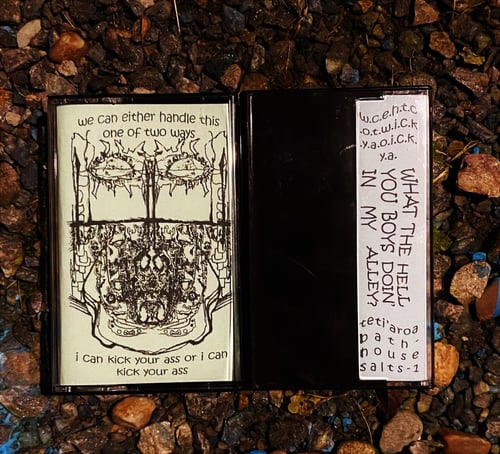 we can either handle this
one of two ways
i can kick your ass or i can
kick your ass
w.c.e.h.t.c
.o.t.w.i.c.k
.y.a.o.i.c.k.
y.a.
WHAT THE HELL
YOU BOYS DOIN'
IN MY ALLEY?
teti'aroa
path-
house
salts-1